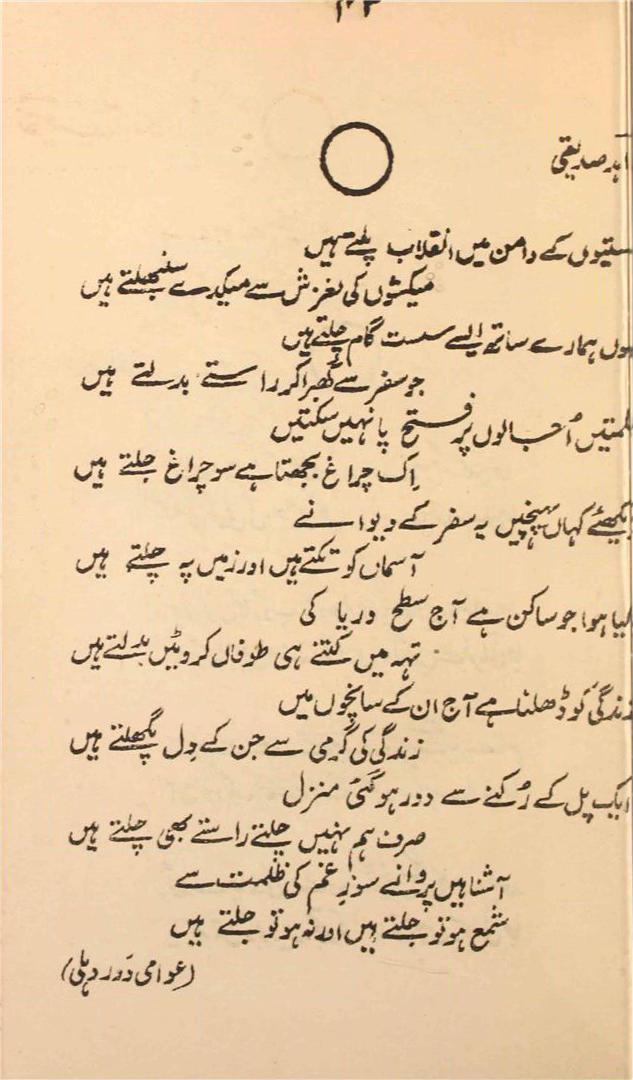 ۱۲۳
ہد صدیقی
ستیوں کے دامن میں انقلاب پلتے ہیں
میکشوں کی لغزش سے میکدے سنبھلتے ہیں
ہوں ہمارے ساتھ ایسے سست گام چلتے ہیں
جو سفر سے گھبرا کر راستے بدلتے ہیں
لمتیں اُجالوں پر فتح پا نہیں سکتیں
اِک چراغ بجھتا ہے سو چراغ جلتے ہیں
دیکھئے کہاں پہنچیں یہ سفر کے دیوانے
آسماں کو تکتے ہیں اور زمیں پہ چلتے ہیں
کیا ہوا جو ساکن ہے آج سطح دریا کی
تہہ میں کتنے ہی طوفاں کروٹیں بدلتے ہیں
زندگی کو ڈھلنا ہے آج ان کے سانچوں میں
زندگی کی گرمی سے جن کے دِل پگھلتے ہیں
ایک پل کے رُکنے سے دور ہو گئی منزل
صرف ہم نہیں چلتے راستے بھی چلتے ہیں
آشنا ہیں پروانے سوزِ غم کی ظلمت سے
شمع ہو تو جلتے ہیں اور نہ ہو تو جلتے ہیں
(عوامی دَور دہلی)